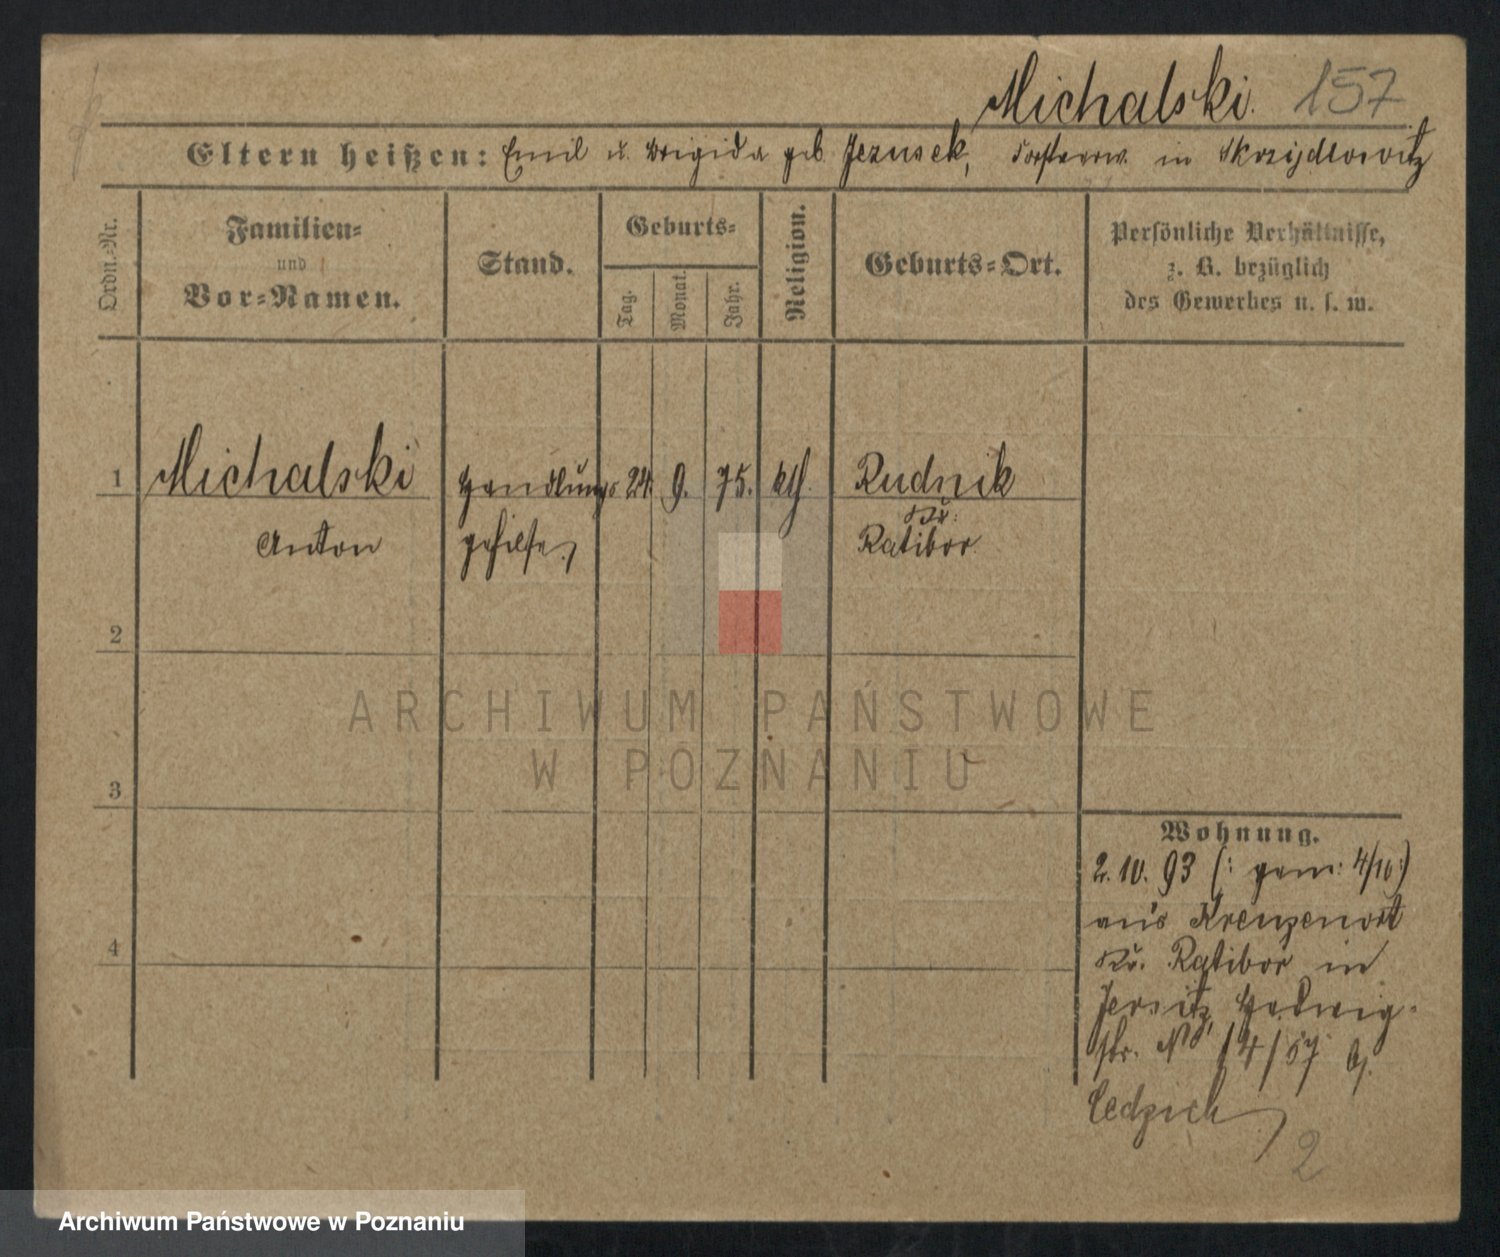 Michalski. 157
Eltern heißen: Emil u. Brigida geb. Jezusek, Forstverw. in Skrzijdlowitz
Ordn.-Nr.
Familien-
und
Vor-Namen.
Stand.
Geburts-
Tag.
Monat.
Jahr.
Religion.
Geburts-Ort.
Persönliche Verhältnisse,
z. B. bezüglich
des Gewerbes u. s. w.
1 Michalski Handlungs 24. 9. 75. kth. Rudnik
Kr.
Anton gehilfe Ratibor
2
ARCHIWUM PAŃSTWOWE
W POZNANIU
3
Wohnung.
2. 10. 93 (: gem: 4/10:)
aus Kreuzenort
4
Kr. Ratibor in
Jersitz, Hedwig-
str. No 14/57 b/
Cedzich
2
Archiwum Państwowe w Poznaniu